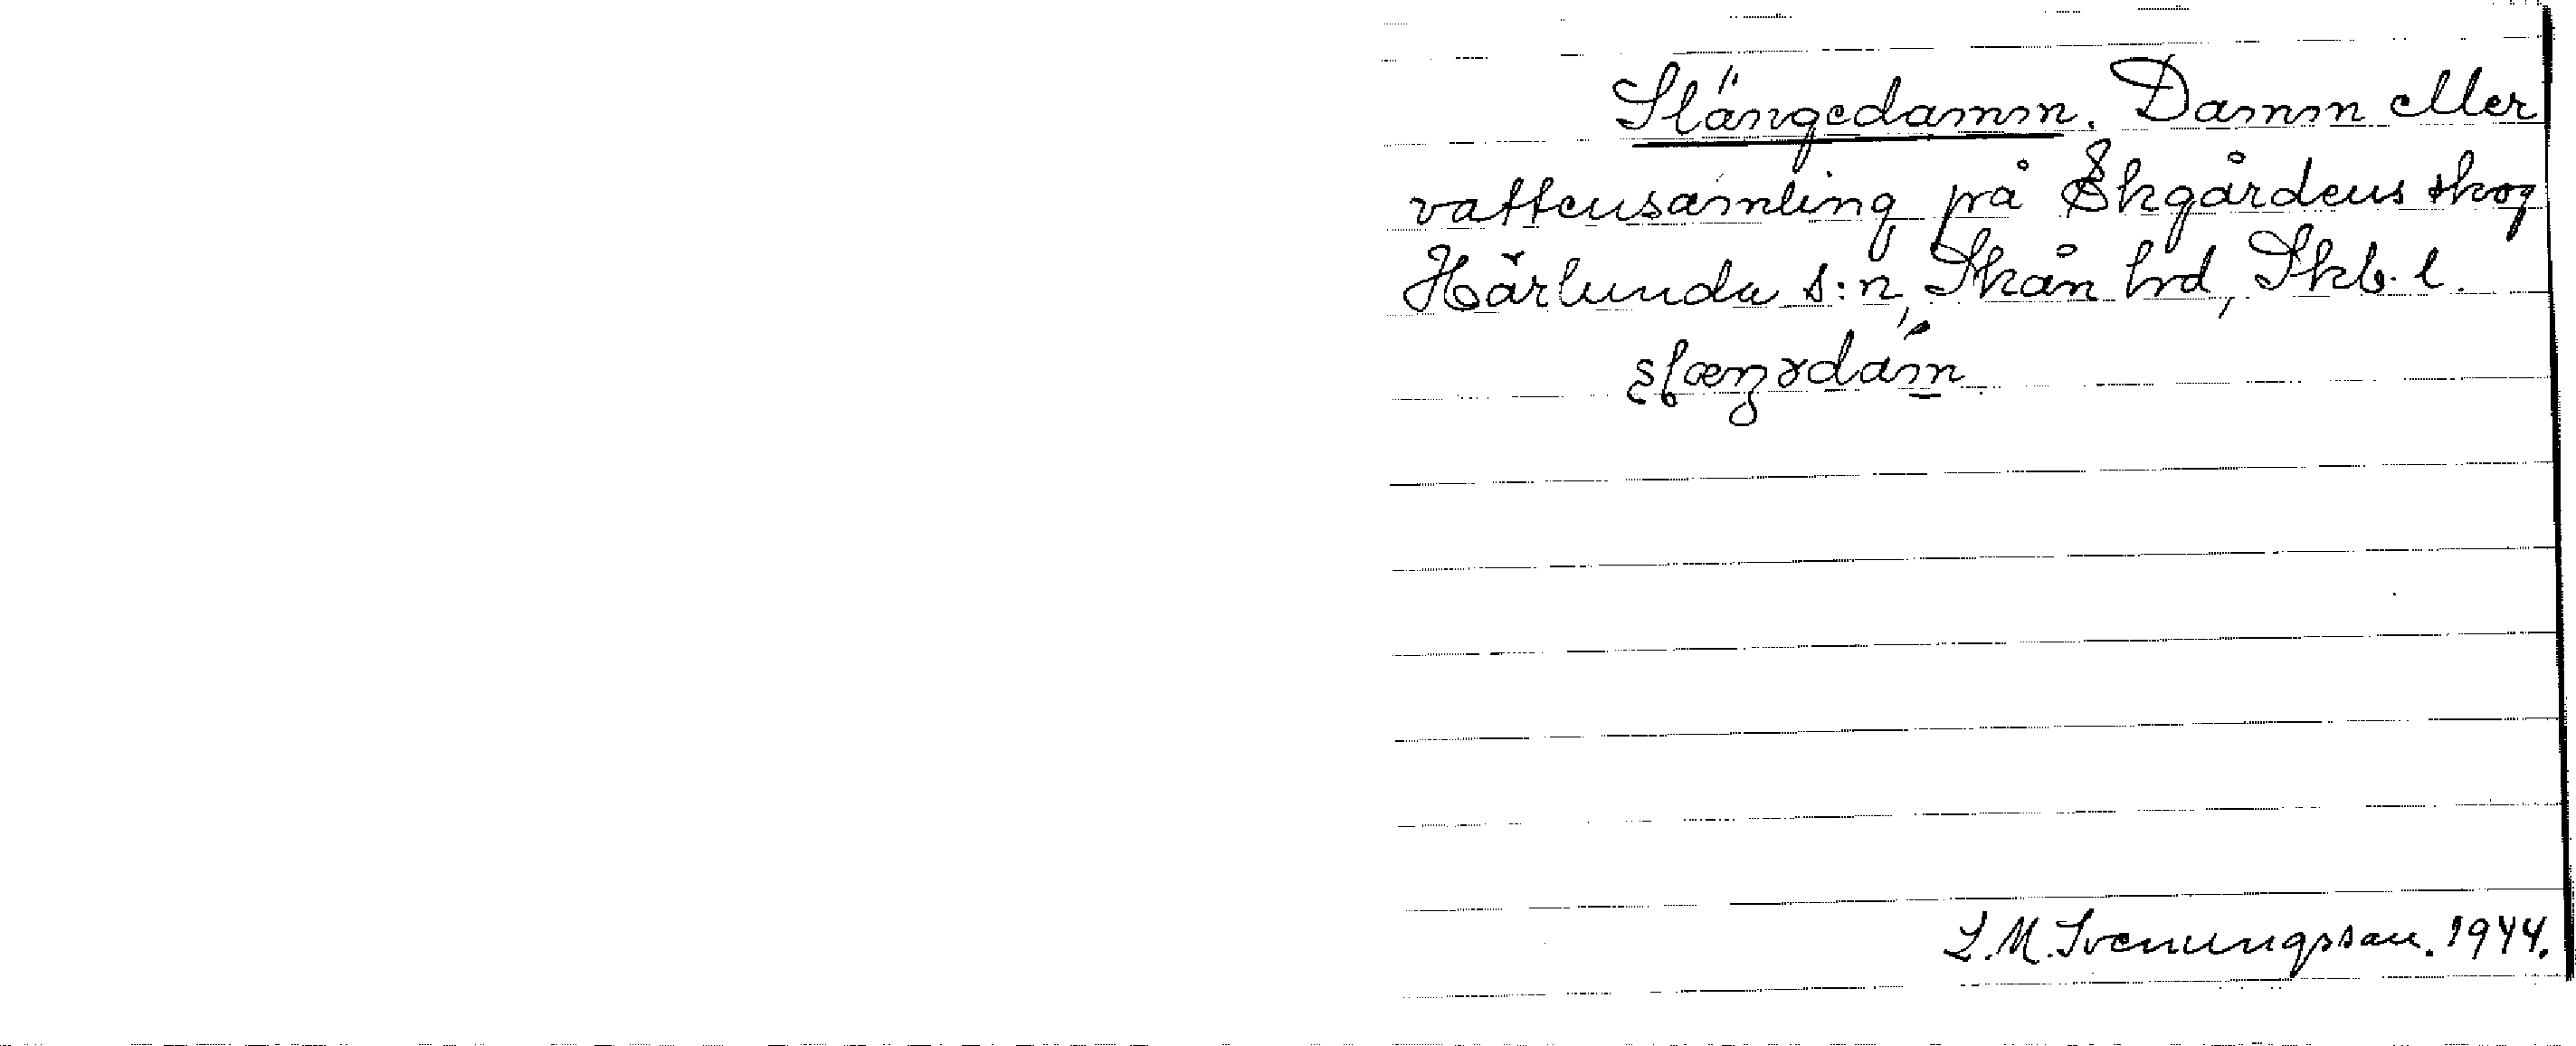 Slängedamm. Damm eller
vattensamling på Ekgårdens skog
Härlunda s:n, Skån hrd, Skb. l.
slæŋɤdam
L.M. Svenungsson. 1944.